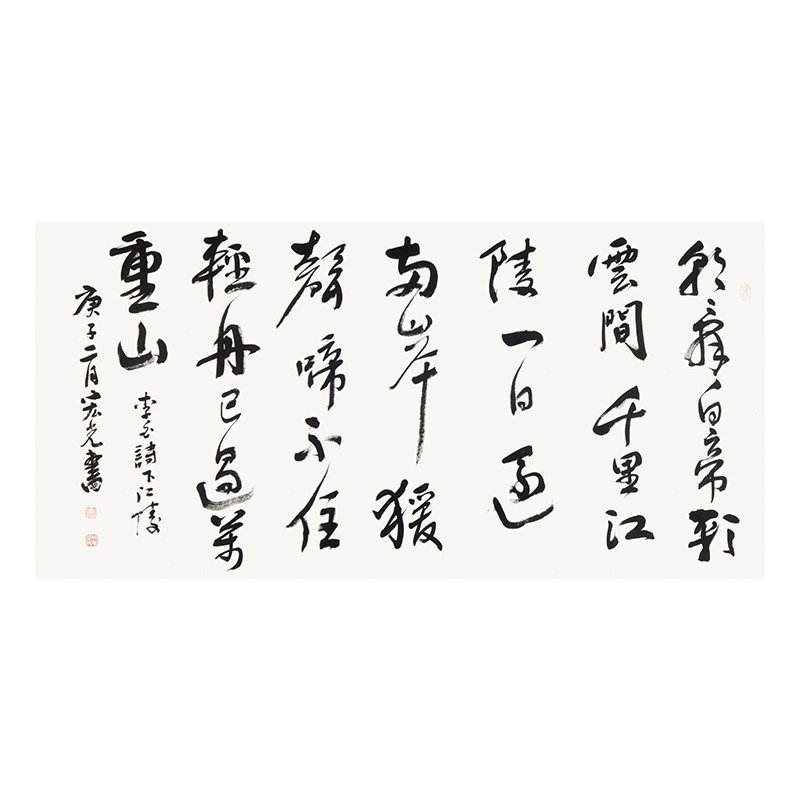 朝辭白帝彩
雲間千里江
陵一日還
兩岸猿
聲啼不住
輕舟已過萬
重山
李白詩下江陵
庚子二月宏光書